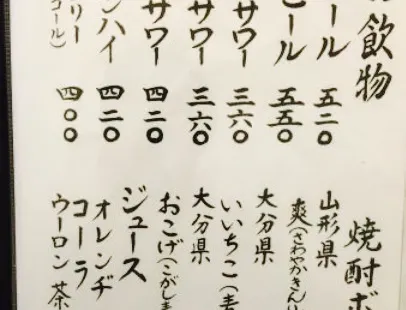 飲物
ール 五二〇
ール 五五〇
サワー 三六〇
サワー 三六〇
サワー 四二〇
ンハイ 四二〇
リー 四〇〇
コール)
焼酎ボ
山形県
爽(さわやかきん
大分県
いいちこ(麦
大分県
おこげ(こがし麦
ジュース
オレンヂ
コーラ
ウーロン茶